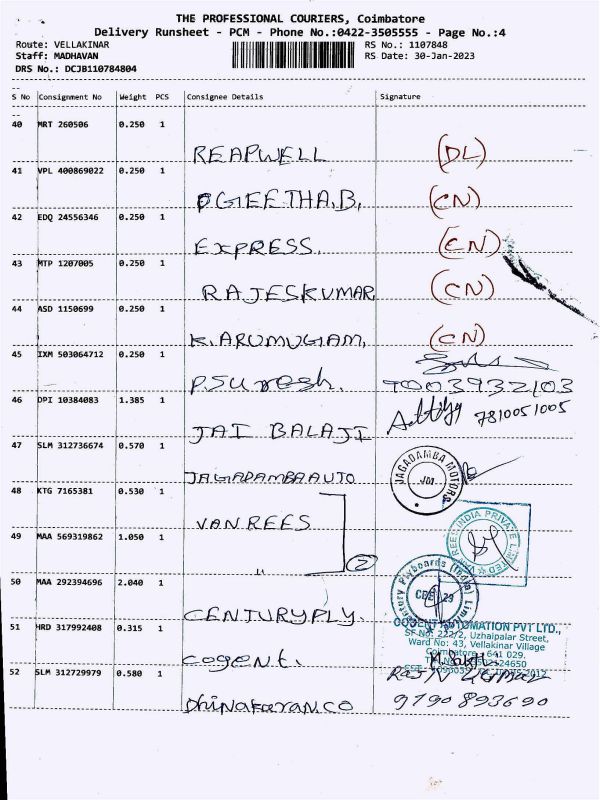 THE PROFESSIONAL COURIERS, Coimbatore
Delivery Runsheet - PCM - Phone No.:0422-3505555 - Page No.:4
Route: VELLAKINAR RS No.: 1107848
Staff: MADHAVAN RS Date: 30-Jan-2023
DRS No.: DCJB110784804
S No Consignment No Weight PCS Consignee Details Signature
40 MRT 260506 0.250 1
REAPWELL (DL)
41 VPL 400869022 0.250 1
GEETHA.B, (CN)
42 EDQ 24556346 0.250 1
EXPRESS. (CN)
43 MTP 1207005 0.250 1
RAJESKUMAR (CN)
44 ASD 1150699 0.250 1
K.ARUMUGAM, (CN)
45 IXM 503064712 0.250 1
P.Suresh. 7003932103
46 DPI 10384083 1.385 1
JAI BALAJI 7810051005
47 SLM 312736674 0.570 1
JAGADAMBA AUTO JAGADAMBA MOTORS
48 KTG 7165381 0.530 1
VANREES
49 MAA 569319862 1.050 1
" 2
50 MAA 292394696 2.040 1
CENTURYPLY.
51 HRD 317992408 0.315 1
COGENT AUTOMATION PVT LTD.,
SF No: 222/2, Uzhaipalar Street,
Ward No: 43, Vellakinar Village
Coimbatore - 641 029.
cogent.
52 SLM 312729979 0.580 1
Dhinakaran.co 9190893690